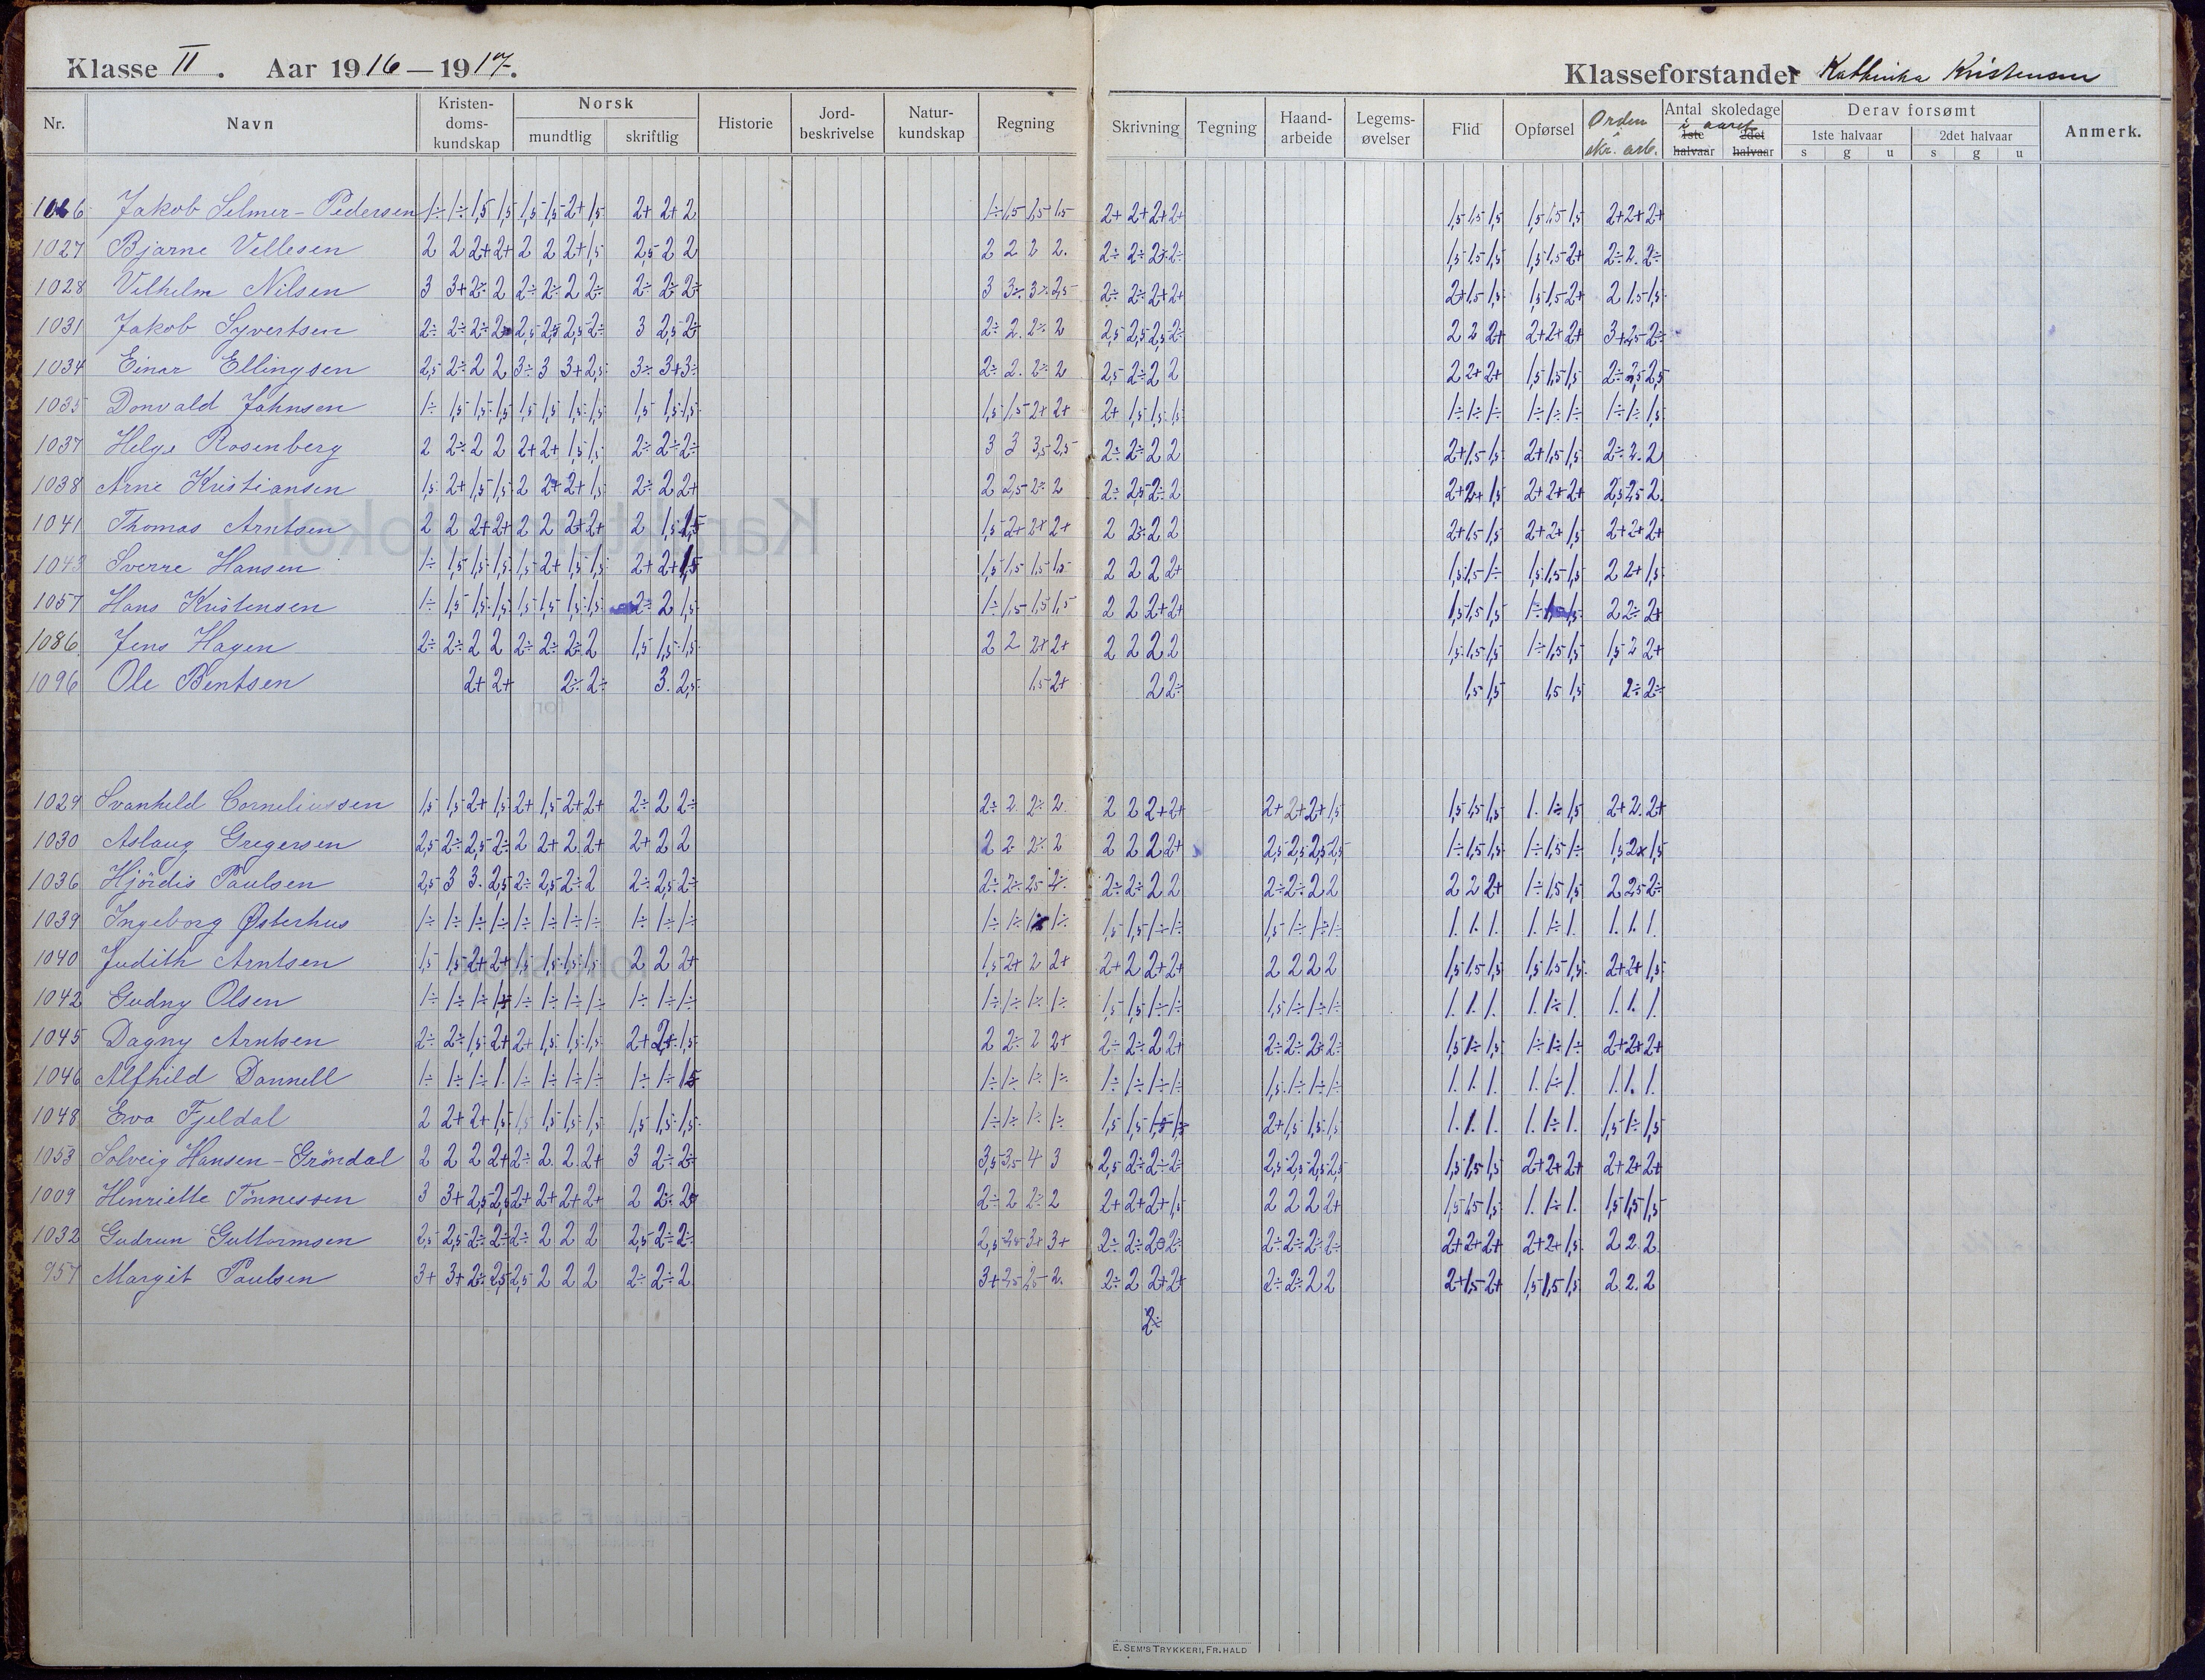 Klasse II. Aar 1916—1917. Klasseforstander Kathinka Kristensen
Nr. Navn Kristen-doms-kundskap Norsk mundtlig skriftlig Historie Jord-beskrivelse Natur-kundskap Regning Skrivning Tegning Haand-arbeide Legems-øvelser Flid Opførsel Orden i skr. arb. Antal skoledage i aaret 1ste halvaar 2det halvaar Derav forsømt 1ste halvaar s g u 2det halvaar s g u Anmerk.
Jakob Selmer-Pedersen 1÷ 1÷ 1,5 1,5 1,5 1,5 2+ 1,5 2+ 2+ 2 1÷ 1,5 1,5 1,5 2+ 2+ 2+ 2+ 1,5 1,5 1,5 1,5 1,5 1,5 2+ 2+ 2+
1027 Bjarne Vellesen 2 2 2+ 2+ 2 2 2+ 1,5 2,5 2 2 2 2 2 2. 2÷ 2÷ 2÷ 2÷ 1,5 1,5 1,5 1,5 1,5 2+ 2÷ 2. 2÷
1028 Vilhelm Nilsen 3 3+ 2÷ 2 2÷ 2÷ 2 2÷ 2÷ 2÷ 2÷ 3 3÷ 3÷ 2,5 2÷ 2÷ 2+ 2+ 2+ 1,5 1,5 1,5 1,5 2+ 2 1,5 1,5
1031 Jakob Syvertsen 2÷ 2÷ 2÷ 2,5 2,5 2,5 2÷ 3 2,5 2÷ 2÷ 2. 2÷ 2 2,5 2,5 2,5 2÷ 2 2 2+ 2+ 2+ 2+ 3+ 2,5 2÷
1034 Einar Ellingsen 2,5 2÷ 2 2 3÷ 3 3+ 2,5 3÷ 3+ 3÷ 2÷ 2. 2÷ 2 2,5 2÷ 2 2 2 2+ 2+ 1,5 1,5 1,5 2÷ 2,5 2,5
1035 Donvald Johnsen 1÷ 1,5 1,5 1,5 1,5 1,5 1,5 1,5 1,5 1,5 1,5 1,5 1,5 2+ 2+ 2+ 1,5 1,5 1,5 1÷ 1÷ 1÷ 1÷ 1÷ 1÷ 1÷ 1÷ 1,5
1037 Helge Rosenberg 2 2÷ 2 2 2+ 2+ 1,5 1,5 2÷ 2÷ 2÷ 3 3 3,5 2,5 2÷ 2÷ 2 2 2+ 1,5 1,5 2+ 1,5 1,5 2÷ 2. 2
1038 Arne Kristiansen 1,5 2+ 1,5 1,5 2 2+ 2+ 1,5 2÷ 2 2+ 2 2,5 2÷ 2 2÷ 2,5 2÷ 2 2+ 2+ 1,5 2+ 2+ 2+ 2,5 2,5 2
1041 Thomas Arntsen 2 2 2+ 2+ 2 2 2+ 2+ 2 1,5 1,5 1,5 2+ 2+ 2+ 2 2÷ 2 2 2+ 1,5 1,5 2+ 2+ 1,5 2+ 2+ 2+
1043 Sverre Hansen 1÷ 1,5 1,5 1,5 1,5 2+ 1,5 1,5 2+ 2+ 1,5 1,5 1,5 1,5 1,5 2 2 2 2+ 1,5 1,5 1÷ 1,5 1,5 1,5 2 2+ 1,5
1057 Hans Kristensen 1÷ 1,5 1,5 1,5 1,5 1,5 1,5 1,5 2÷ 2 1,5 1÷ 1,5 1,5 1,5 2 2 2+ 2+ 1,5 1,5 1,5 1÷ 1,5 2 2÷ 2+
1086 Jens Hagen 2÷ 2÷ 2 2 2÷ 2÷ 2÷ 2 1,5 1,5 1,5 2 2 2+ 2+ 2 2 2 2 1,5 1,5 1,5 1÷ 1,5 1,5 1,5 2 2+
1096 Ole Bentsen 2+ 2+ 2÷ 2÷ 3. 2,5 1,5 2+ 2 2÷ 1,5 1,5 1,5 1,5 2÷ 2÷
1029 Svanhild Corneliussen 1,5 1,5 2+ 1,5 2+ 1,5 2+ 2+ 2÷ 2 2÷ 2÷ 2. 2÷ 2. 2 2 2+ 2+ 2+ 2+ 2+ 1,5 1,5 1,5 1,5 1. 1÷ 1,5 2+ 2. 2+
1030 Aslaug Gregersen 2,5 2÷ 2,5 2÷ 2 2+ 2 2+ 2+ 2 2 2 2 2÷ 2 2 2 2 2+ 2,5 2,5 2,5 2,5 1÷ 1,5 1,5 1÷ 1,5 1÷ 1,5 2+ 1,5
1036 Hjördis Paulsen 2,5 3 3. 2,5 2÷ 2,5 2÷ 2 2÷ 2,5 2÷ 2÷ 2÷ 2,5 2÷ 2÷ 2÷ 2 2 2÷ 2÷ 2 2 2 2 2+ 1÷ 1,5 1,5 2 2,5 2÷
1039 Ingeborg Østerhus 1÷ 1÷ 1÷ 1÷ 1÷ 1÷ 1÷ 1÷ 1÷ 1÷ 1÷ 1÷ 1÷ 1÷ 1,5 1,5 1÷ 1÷ 1,5 1÷ 1÷ 1÷ 1. 1. 1. 1. 1÷ 1. 1. 1. 1.
1040 Judith Arntsen 1,5 1,5 2+ 2+ 1,5 1,5 1,5 1,5 2 2 2+ 1,5 2+ 2 2+ 2+ 2 2+ 2+ 2 2 2 2 1,5 1,5 1,5 1,5 1,5 1,5 2+ 2+ 1,5
1042 Gudny Olsen 1÷ 1÷ 1÷ 1,5 1÷ 1÷ 1÷ 1÷ 1÷ 1÷ 1÷ 1÷ 1÷ 1÷ 1÷ 1,5 1,5 1÷ 1÷ 1,5 1÷ 1÷ 1÷ 1. 1. 1. 1. 1÷ 1. 1. 1. 1.
1045 Dagny Arntsen 2÷ 2÷ 1,5 2+ 2+ 1,5 1,5 1,5 2+ 1,5 2 2÷ 2 2+ 2÷ 2÷ 2 2+ 2÷ 2÷ 2÷ 2÷ 1,5 1÷ 1,5 1÷ 1÷ 1÷ 2+ 2+ 2+
1046 Alfhild Dannell 1÷ 1÷ 1÷ 1. 1÷ 1÷ 1÷ 1÷ 1÷ 1÷ 1,5 1÷ 1÷ 1÷ 1÷ 1÷ 1÷ 1÷ 1÷ 1,5 1÷ 1÷ 1÷ 1. 1. 1. 1. 1÷ 1. 1. 1. 1.
1048 Eva Fjeldal 2 2+ 2+ 1,5 1,5 1,5 1,5 1,5 1,5 1,5 1,5 1÷ 1÷ 1÷ 1÷ 1,5 1,5 1,5 1,5 2+ 1,5 1,5 1,5 1. 1. 1. 1. 1÷ 1. 1,5 1÷ 1,5
1053 Solveig Hansen-Gröndal 2 2 2 2+ 2÷ 2. 2. 2+ 3 2÷ 2÷ 3,5 3,5 4 3 2,5 2÷ 2÷ 2÷ 2,5 2,5 2,5 2,5 1,5 1,5 1,5 2+ 2+ 2+ 2+ 2+ 2+
1009 Henriette Tönnessen 3 3+ 2,5 2,5 2+ 2+ 2+ 2+ 2 2÷ 2÷ 2 2÷ 2 2+ 2+ 2+ 1,5 2 2 2 2+ 1,5 1,5 1,5 1. 1÷ 1. 1,5 1,5 1,5
1032 Gudrun Guttormsen 2,5 2,5 2÷ 2÷ 2÷ 2 2 2 2,5 2÷ 2÷ 2,5 2,5 3+ 3+ 2÷ 2÷ 2÷ 2÷ 2÷ 2÷ 2÷ 2÷ 2+ 2+ 2+ 2+ 2+ 1,5 2 2. 2
957 Margit Paulsen 3+ 3+ 2÷ 2,5 2,5 2 2 2 2÷ 2÷ 2 3+ 2,5 2,5 2. 2÷ 2 2+ 2+ 2÷ 2÷ 2 2 2+ 1,5 2+ 1,5 1,5 1,5 2 2. 2
2÷
E. SEM'S TRYKKERI, FR.HALD